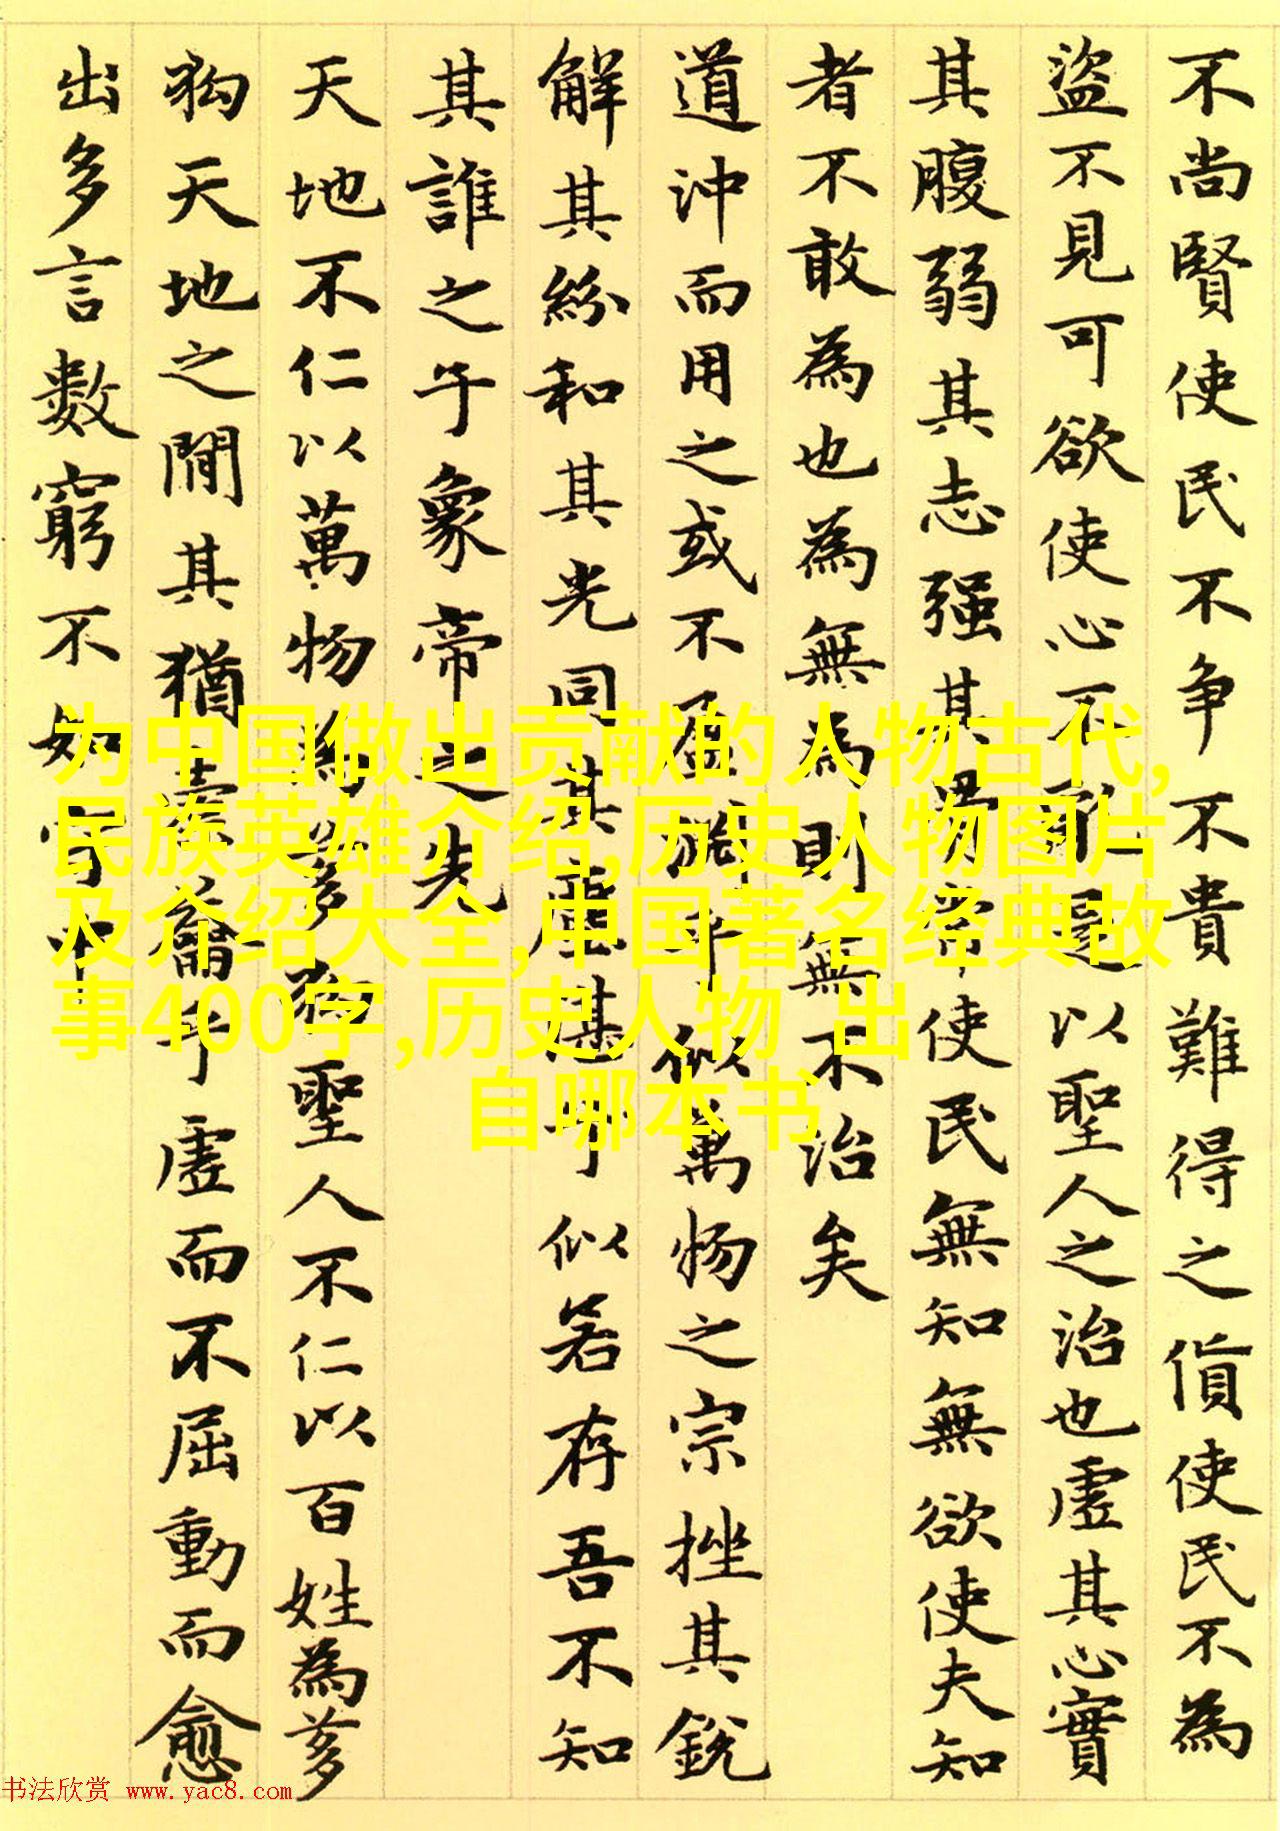 不尚賢使民不争不貴難得之貨使民不為
盜不見可欲使心不乱是以聖人之治也虛其心實
其腹弱其志强其骨常使民無知無欲使夫知
者不敢為也為無為則無不治矣
道沖而用之或不盈淵乎似萬物之宗挫其銳
解其紛和其光同其塵湛乎似若存吾不知
其誰之子象帝之先
天地不仁以萬物為芻狗聖人不仁以百姓為芻
狗天地之間其猶橐籥乎虛而不屈動而愈
出多言數窮不如守中
为中国做出贡献的人物古代,
民族英雄介绍,历史人物图片
及介绍大全,中国著名经典故
事400字,历史人物 出
自哪本书
书法欣赏 www.yac8.com